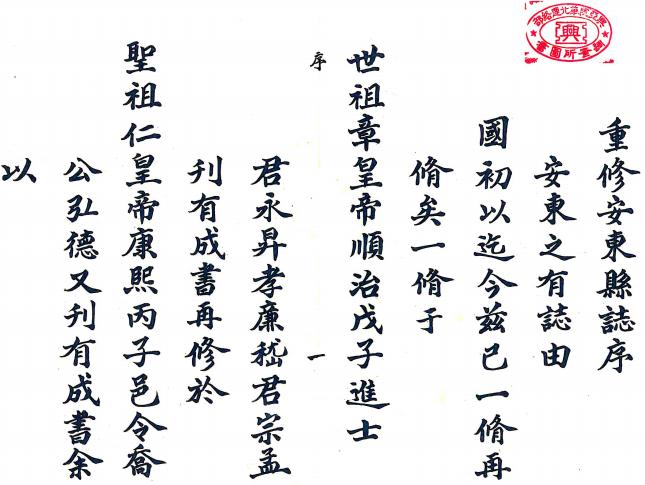 重修安東縣誌序
安東之有誌由
國初以迄今茲已一脩再
脩矣一脩于
世祖章皇帝順治戊子進士
序
一
君永昇孝廉嵇君宗孟
刊有成書再修於
聖祖仁皇帝康熙丙子邑令喬
公弘德又刊有成書余
以